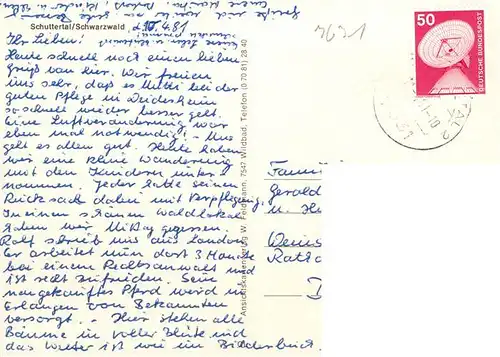 Schuttertal/Schwarzwald d. 10.4.81
Ihr Lieben!
Heute schnell noch einen lieben
Gruß von hier. Wir freuen
uns sehr, daß es Mutti bei der
guten Pflege in Weidesheim
so schnell wieder besser geht.
Eine Luftveränderung war
eben mal notwendig! Uns
geht es allen gut. Heute haben
wir eine kleine Wanderung
mit den Kindern unter
nommen. Jeder hatte seinen
Rucksack dabei mit Verpflegung,
In einem schönen Waldlokal
haben wir Mittag gegessen.
Rolf schrieb uns aus London
Er arbeitet nun dort 3 Monate
bei einem Rechtsanwalt und
ist recht zufrieden. Sein
neugekauftes Pferd wird in
Erlangen von Bekannten
versorgt. Hier stehen alle
Bäume in voller Blüte und
das Wetter ist wie im Bilderbuch
Ansichtskartenverlag W. Feldmann, 7547 Wildbad, Telefon (0 70 81) 28 40
7631
50
DEUTSCHE BUNDESPOST
Famili
Gerald
u.
Rats